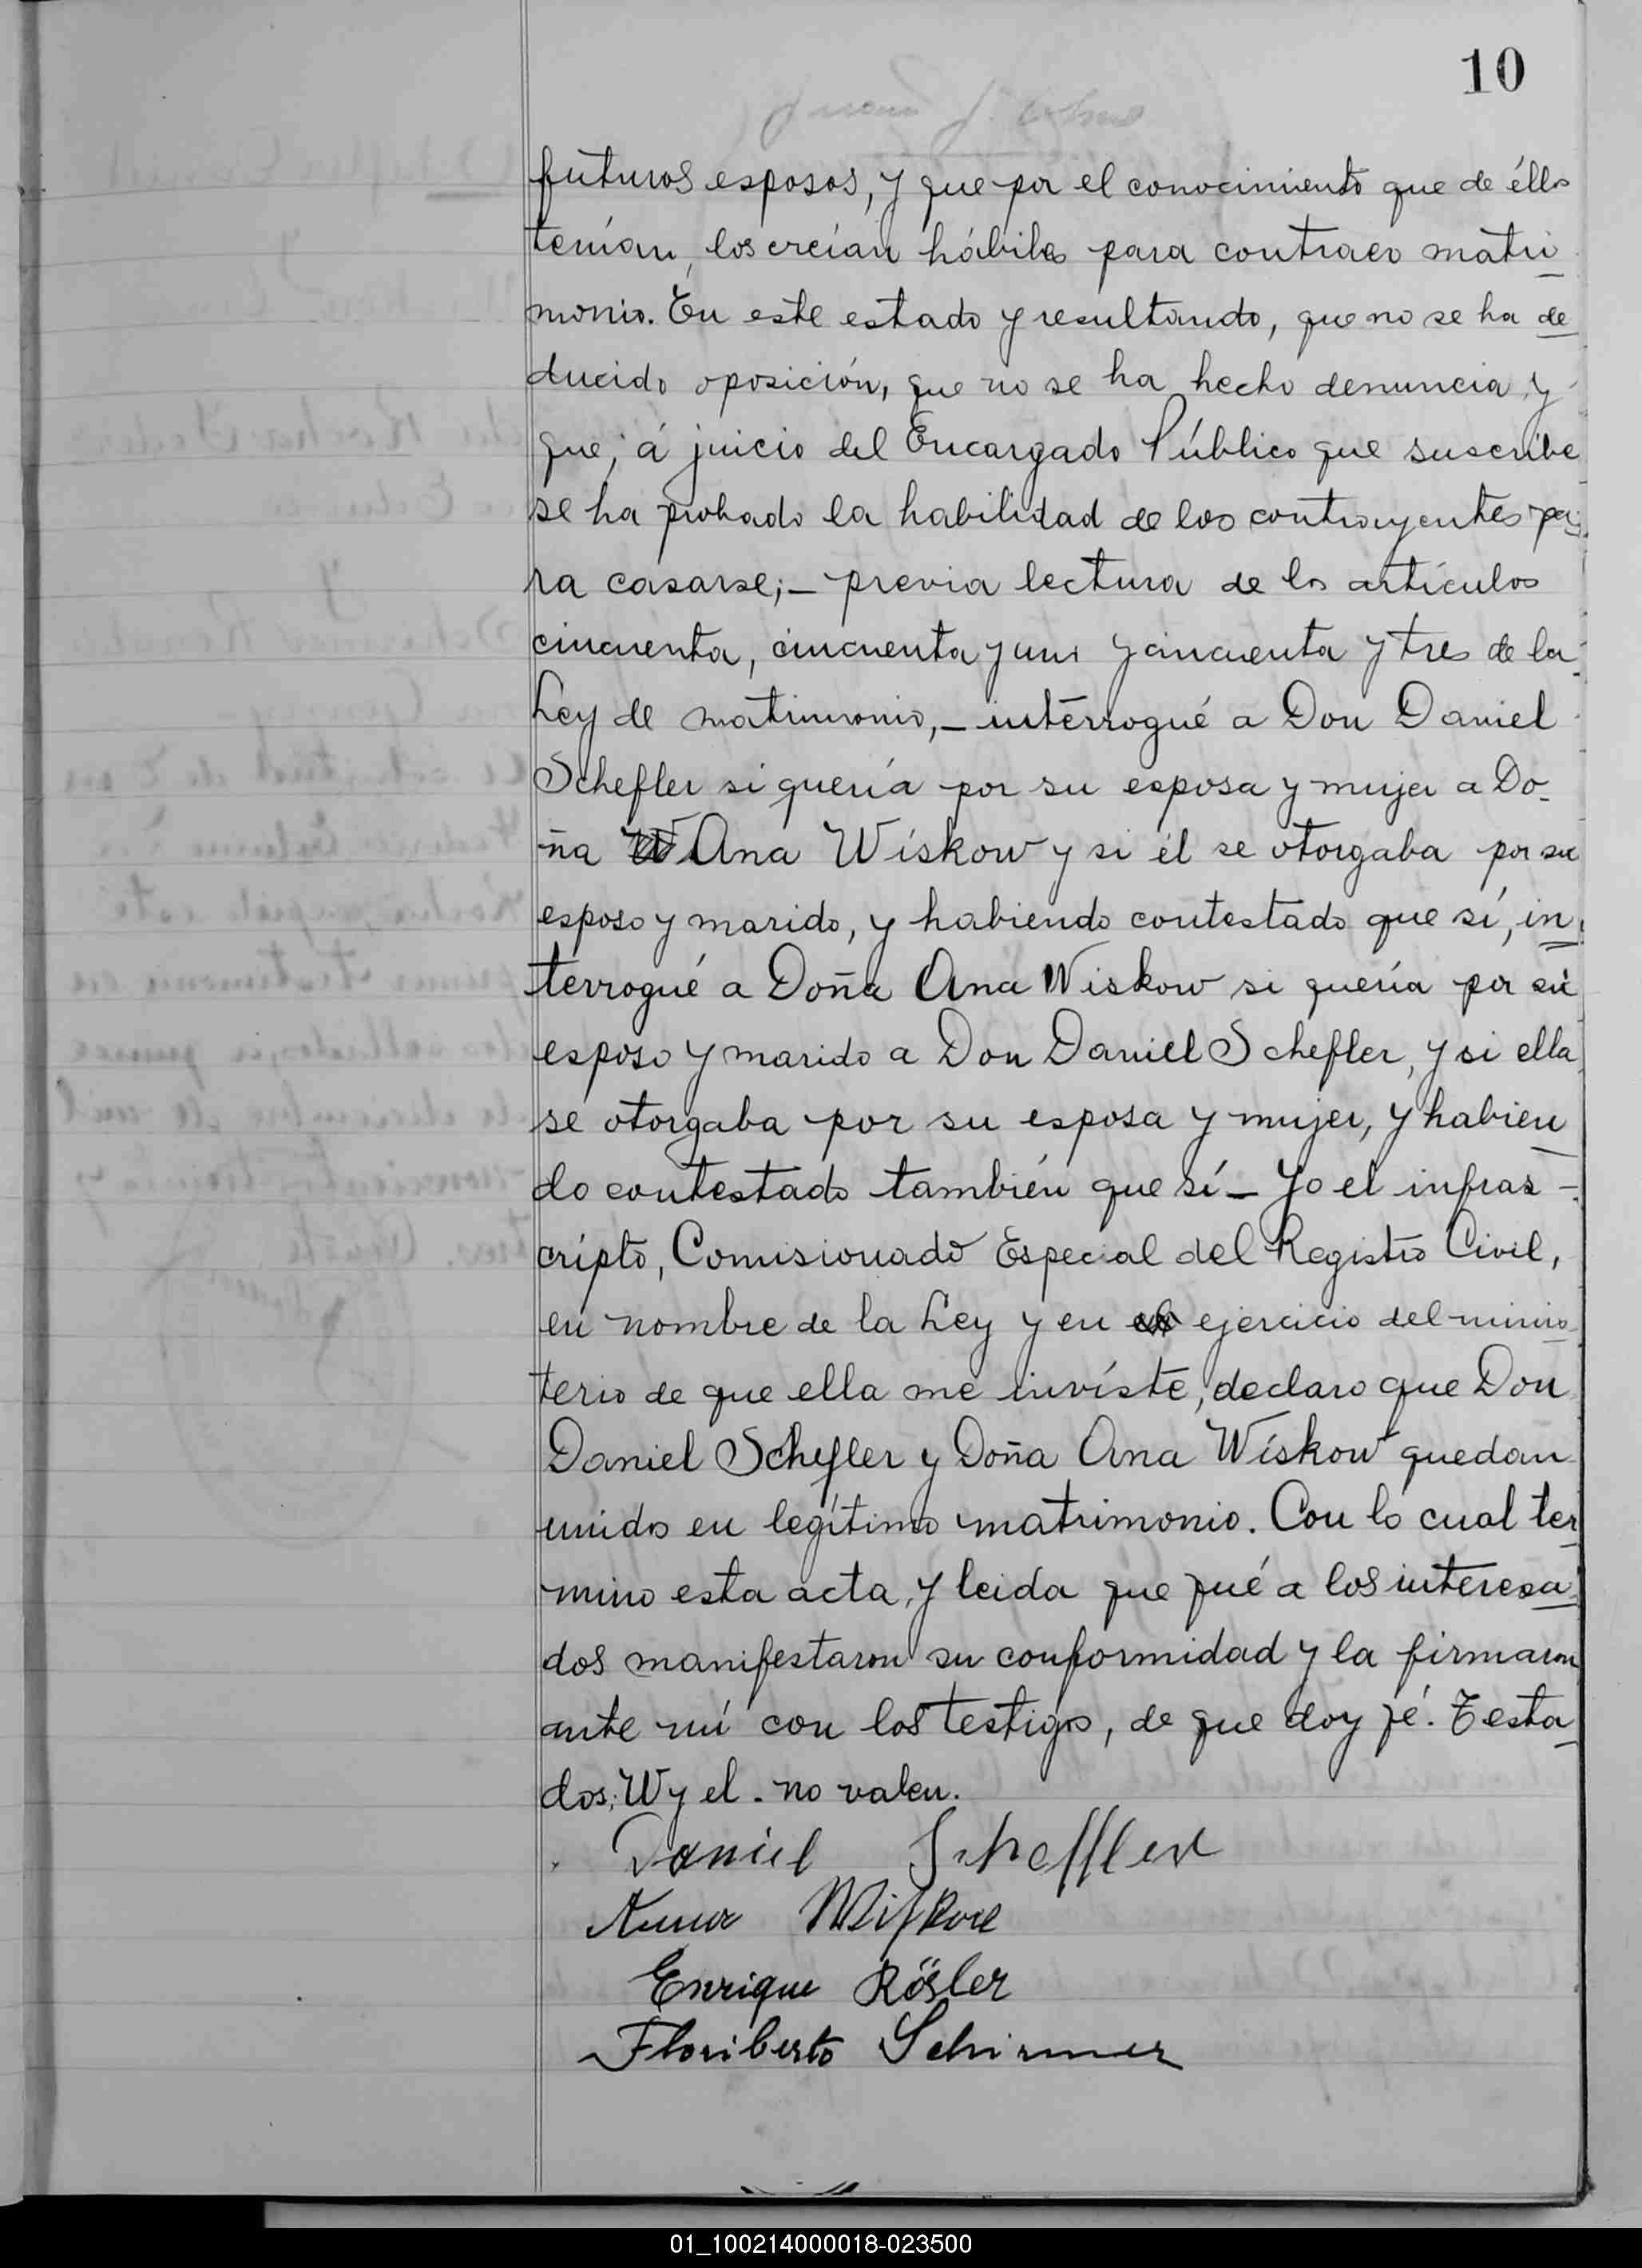 10
futuros esposos, y que por el conocimiento que de éllos
tenían, los creían hábiles para contraer matri
monio. En este estado y resultando, que no se ha de
ducido oposición, que no se ha hecho denuncia, y
que, á juicio del Encargado Público que suscribe
se ha probado la habilidad de los contrayentes pa
ra casarse;- previa lectura de los artículos
cincuenta, cincuenta y uno y cincuenta y tres de la
Ley de matrimonio,- interrogué a Don Daniel
Schefler si quería por su esposa y mujer a Do-
ña W Ana Wiskow y si él se otorgaba por su
esposo y marido, y habiendo contestado que sí, in
terrogué a Doña Ana Wiskow si quería por su
esposo y marido a Don Daniel Schefler, y si ella
se otorgaba por su esposa y mujer, y habien
do contestado también que sí - Yo el infras-
cripto, Comisionado Especial del Registro Civil,
en nombre de la Ley y en el ejercicio del minis
terio de que ella me invíste, declaro que Don
Daniel Schefler y Doña Ana Wískow quedan
unidos en legítimo matrimonio. Con lo cual ter
mino esta acta, y leida que fué a los interesa
dos manifestaron su conformidad y la firmaron
ante mí con los testigos, de que doy fé. Testa
dos: W y el - no valen.
Daniel Scheffler
Anna Wiskow
Enrique Rösler
Floriberto Schirmer
01_100214000018-023500